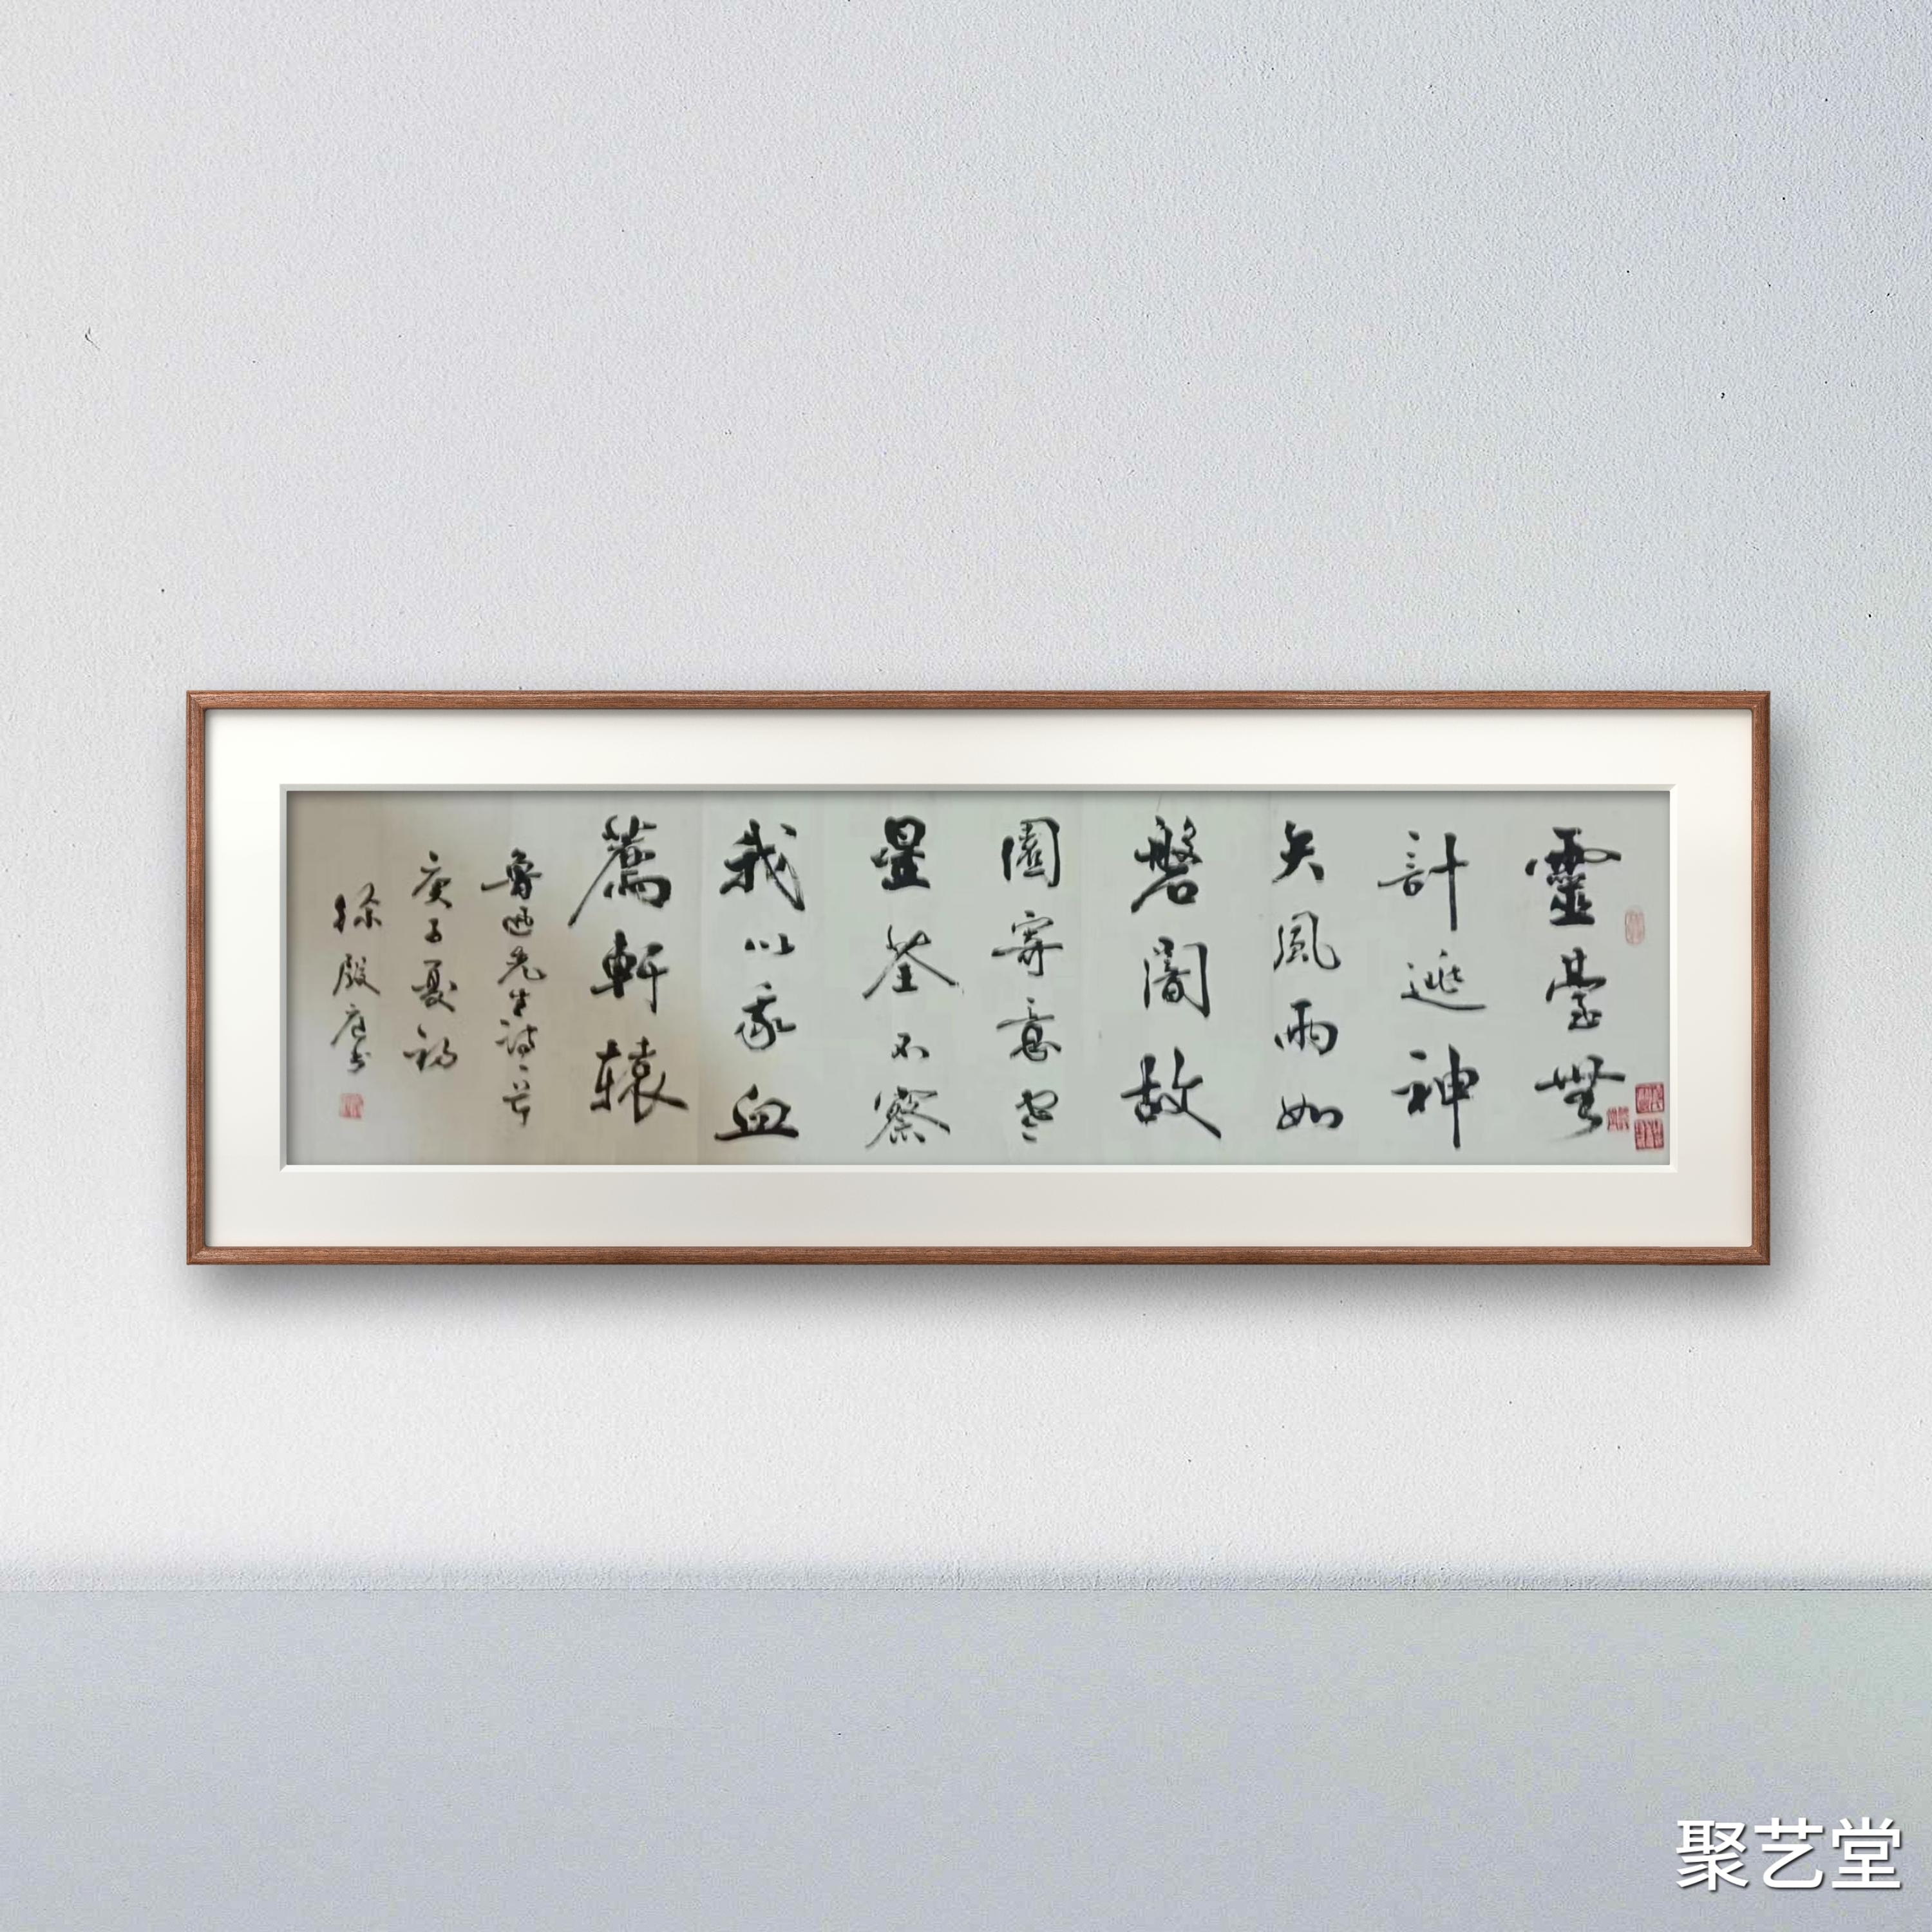 靈臺無
計逃神
矢風雨如
磐闇故
園寄意寒
星荃不察
我以我血
薦軒辕
魯迅先生詩一首
庚子夏初
徐殿书
聚艺堂